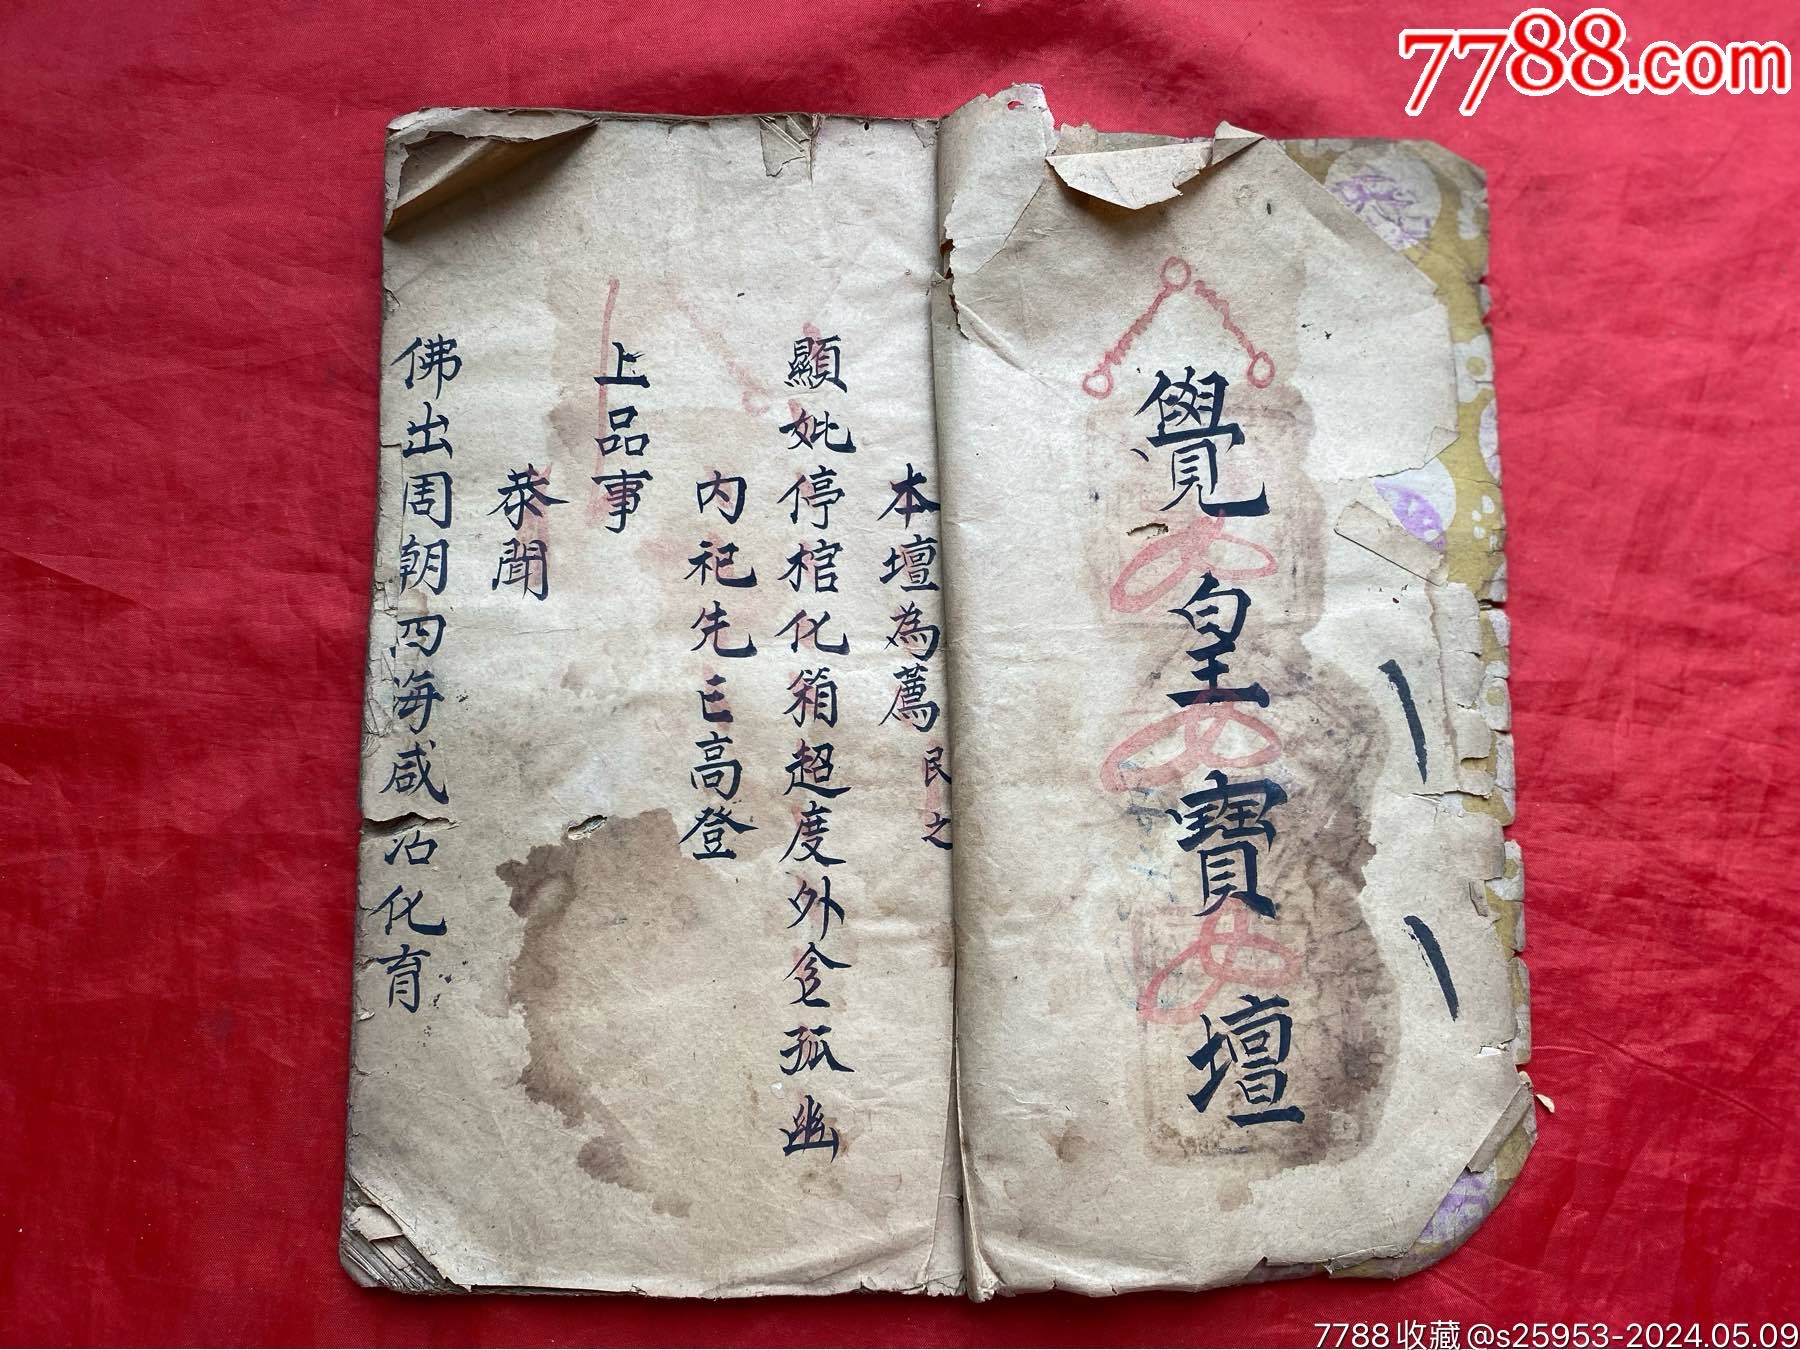 7788.com
覺皇寶壇
本壇為薦民之
顯妣停棺化箱超度外金孤幽
内祀先亡高登
上品事
恭聞
佛出周朝四海咸沾化育
7788收藏@s25953-2024.05.09